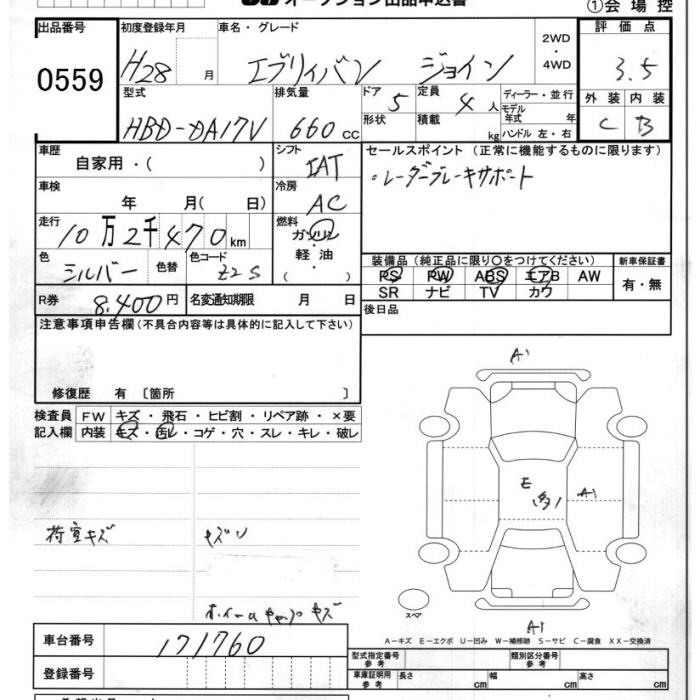 オークション出品申込書
①会場控
出品番号 0559
初度登録年月 H28 月
車名・グレード エブリィバン ジョイン
2WD・4WD
評価点 3.5
外装 内装
C B
型式 HBD-DA17V
排気量 660cc
ドア 5
形状
定員 4人
積載 kg
ディーラー・並行
モデル年式 年
ハンドル 左・右
車歴 自家用・( )
シフト IAT
セールスポイント (正常に機能するものに限ります)
・レーダーブレーキサポート
車検 年 月(日)
冷房 AC
走行 10万2千470km
燃料 ガソリン・軽油・( )
色 シルバー 色替
色コード Z2S
装備品 (純正品に限り〇をつけてください)
PS PW ABS エアB AW
SR ナビ TV カワ
新車保証書 有・無
R券 8,400円
名変通知期限 月 日
後日品
注意事項申告欄 (不具合内容等は具体的に記入して下さい)
修復歴 有 〔箇所 〕
検査員記入欄
FW キズ・飛石・ヒビ割・リペア跡・×要
内装 キズ・汚レ・コゲ・穴・スレ・キレ・破レ
荷室キズ
キズU
ホイールキャップキズ
A1
E
(多)
A1
A1
スペア
A-キズ E-エクボ U-凹み W-補修跡 S-サビ C-腐食 XX-交換済
車台番号 171760
登録番号
型式指定番号 参考
類別区分番号 参考
車庫証明用 参考
長さ cm 幅 cm 高さ cm